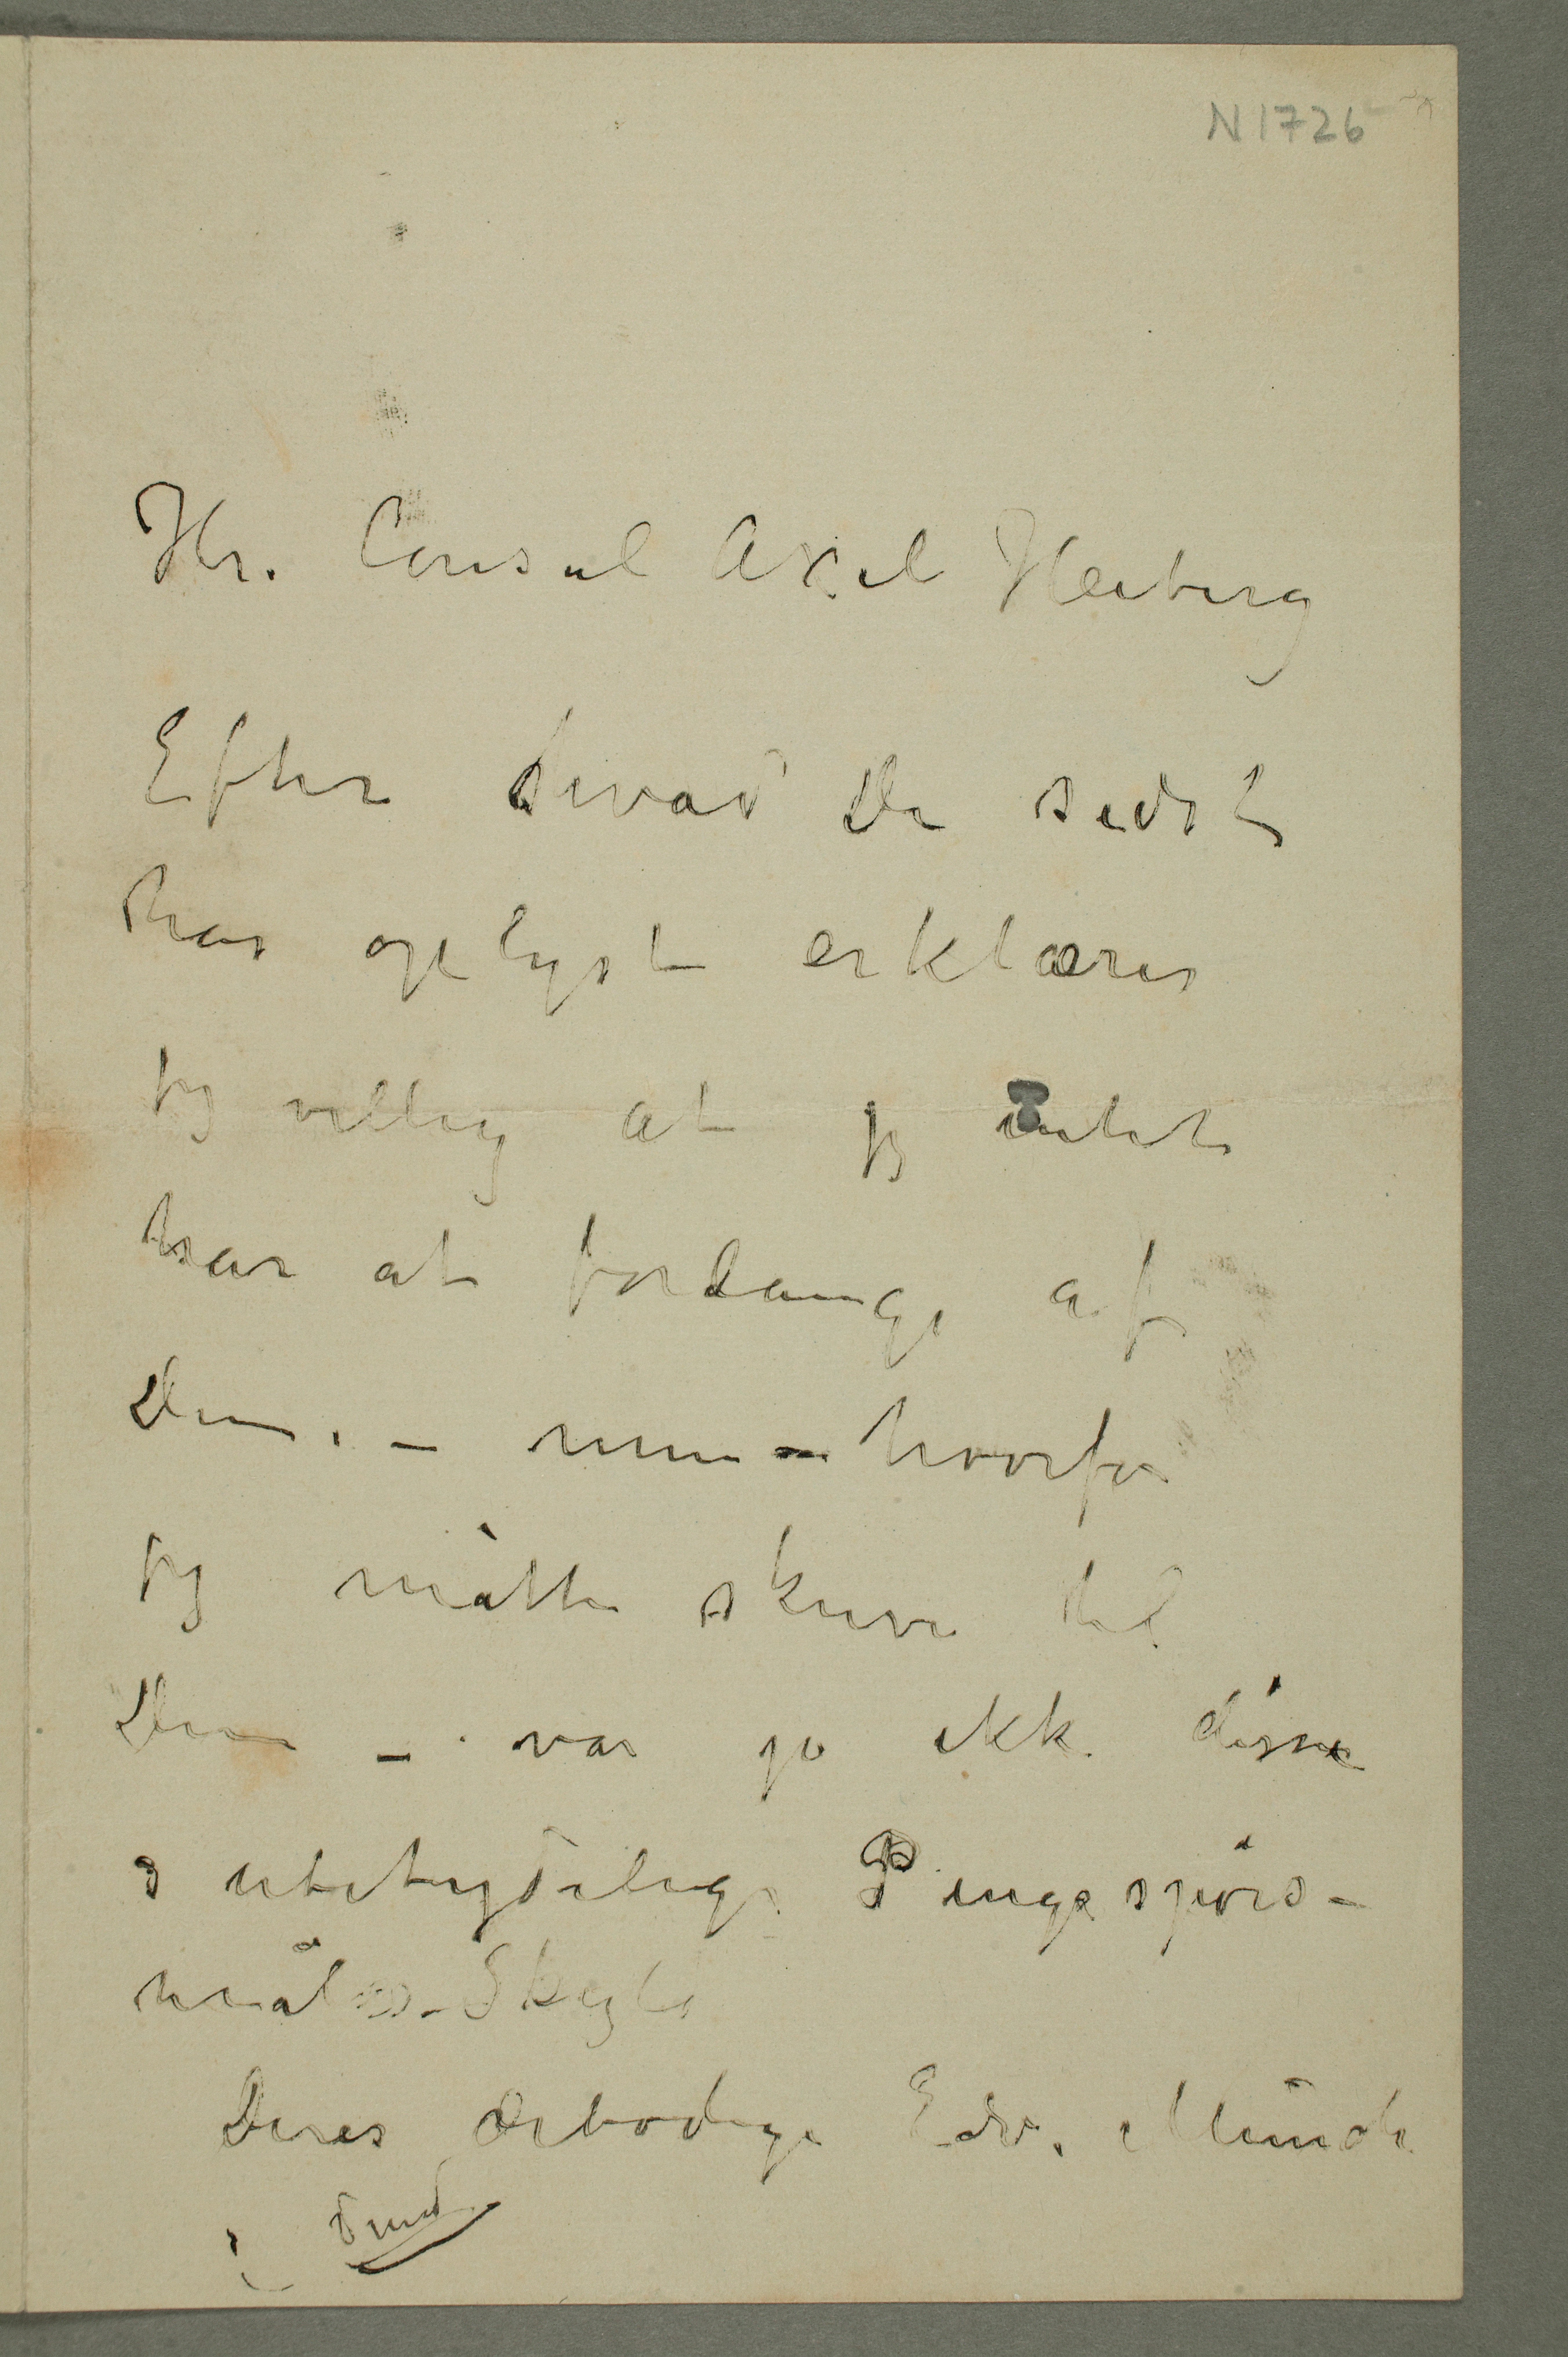 N 1726
Hr. Consul Axel Heiberg
Efter hvad De sidst
har oplyst erklærer
jeg villig at jeg intet
har at fordange af
Dem. – men – hvorfor
jeg måtte skrive til
Dem – var jo ikke disse
ubetydelige Pengespörs-
mål –
Deres ærbødige Edv. Munch